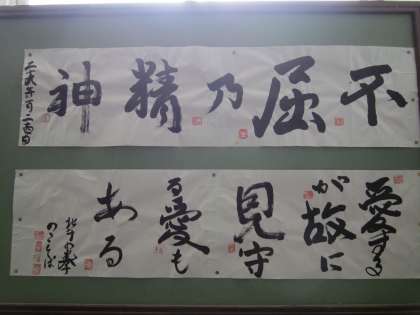 不屈乃精神
愛するが故に見守る愛もある
北斗の拳のことば